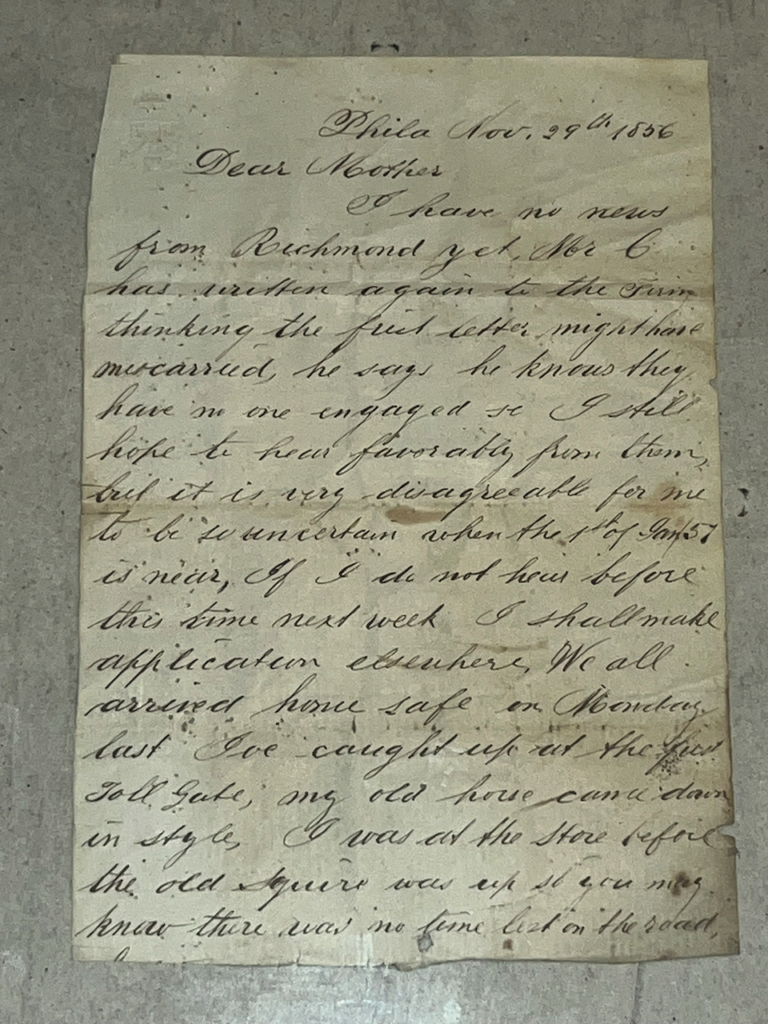 Phila Nov. 29th 1856
Dear Mother
I have no news
from Richmond yet, Mr C
has written again to the Firm
thinking the first letter might have
miscarried, he says he knows they
have no one engaged so I still
hope to hear favorably from them,
but it is very disagreeable for me
to be so uncertain when the 1st of Jan 57
is near, If I do not hear before
this time next week I shall make
application elsewhere, We all
arrived home safe on Monday
last Ive caught up at the first
Toll Gate, my old horse came down
in style, I was at the store before
the old Squire was up so you may
know there was no time lost on the road,